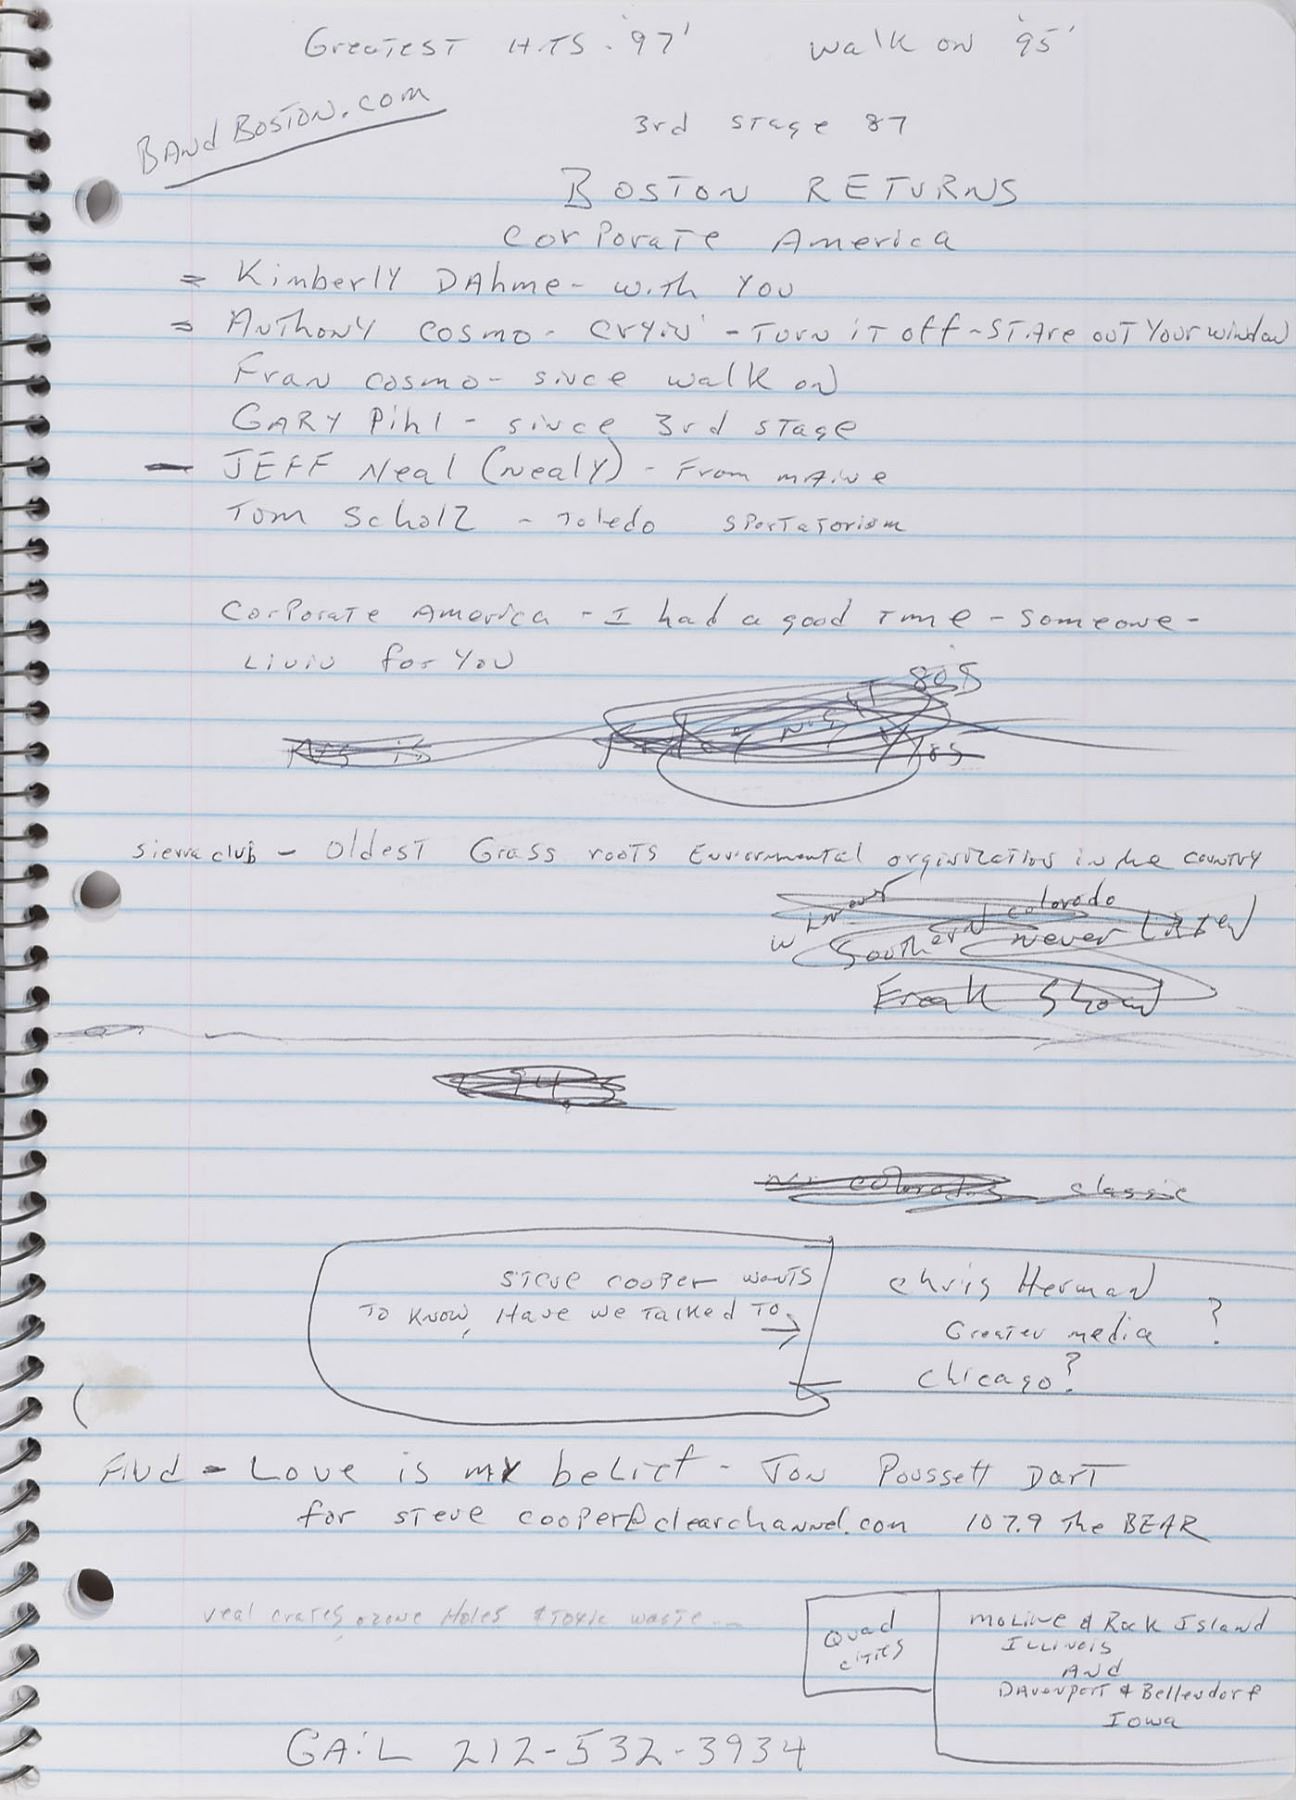 Greatest Hits '97' Walk on '95'
BandBoston.com
3rd stage 87
Boston Returns
Corporate America
= Kimberly Dahme - with you
= Anthony Cosmo - Cryin' - Turn it off - Stare out your window
Fran Cosmo - since walk on
Gary Pihl - since 3rd stage
- Jeff Neal (Nealy) - From Maine
Tom Scholz - Toledo Sportatorism
Corporate America - I had a good time - someone -
Livin for you
80s
Sierra club - Oldest Grass roots Enviornmental orginization in the country
colorado
Southern never
Freak Show
94.3
colorado classic
Steve Cooper wants
to know, Have we talked to →
Chris Herman
Greater media ?
Chicago?
Find - Love is my belief - Jon Poussett Dart
for steve cooper@clearchannel.com 107.9 The BEAR
veal crates, ozone Holes & toxic waste...
Quad
cities
Moline & Rock Island
Illinois
And
Davenport & Bellendorf
Iowa
GAiL 212-532-3934